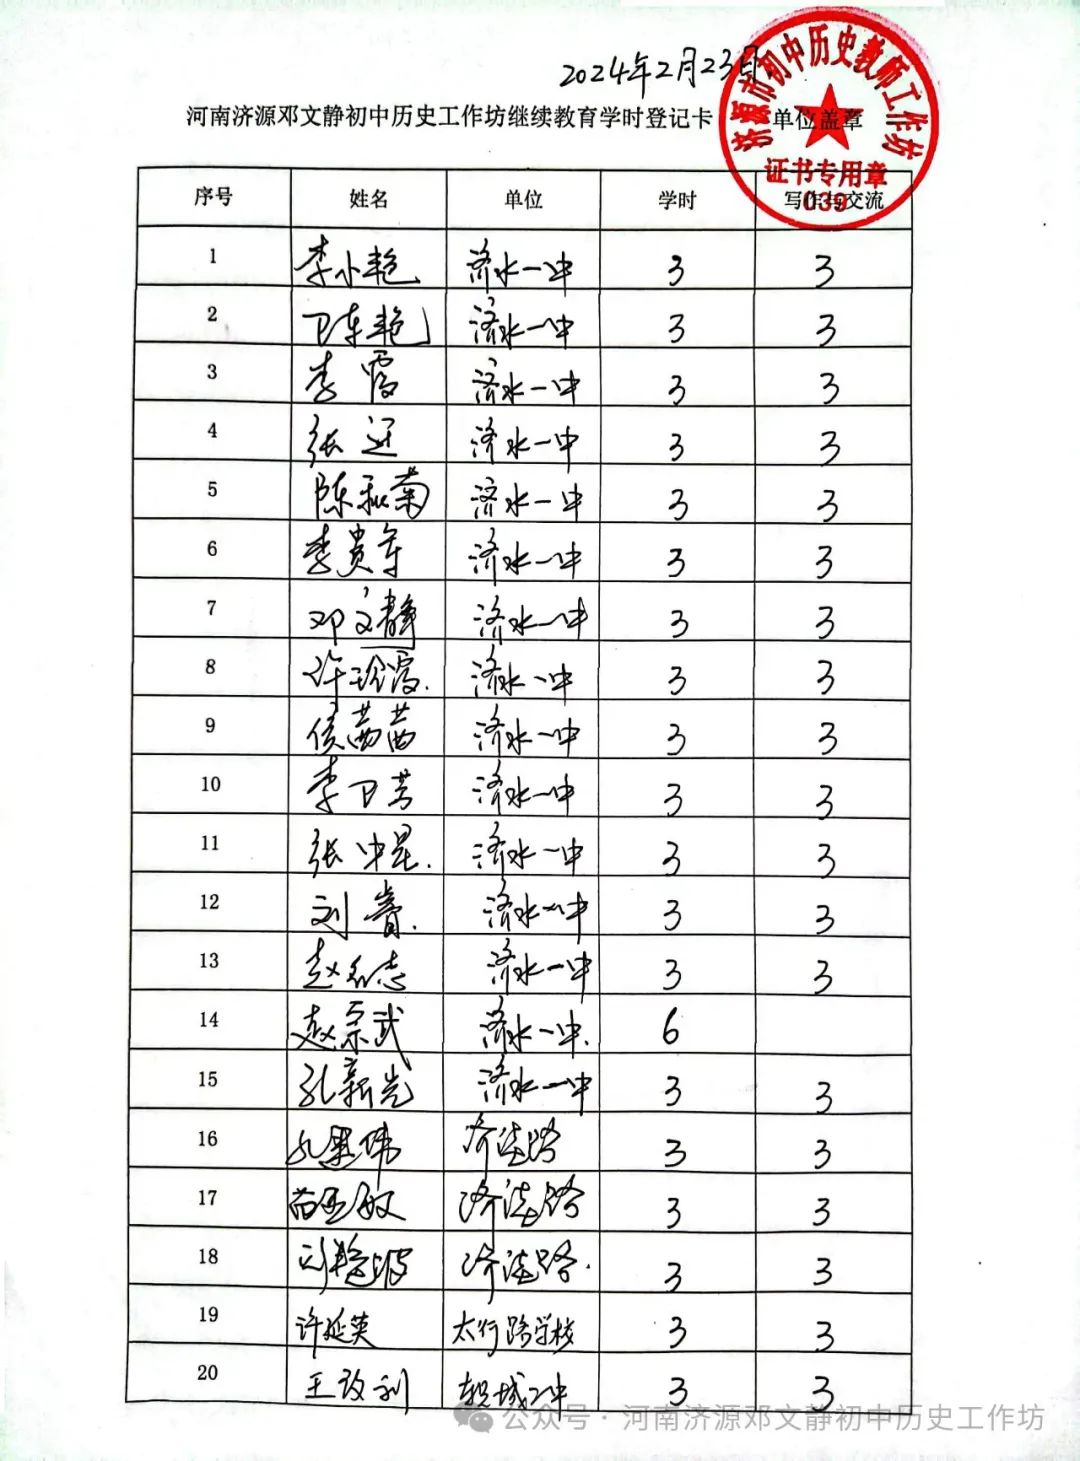 2024年2月23日
河南济源邓文静初中历史工作坊继续教育学时登记卡 单位盖章
济源市初中历史教师工作坊
证书专用章
039
序号 姓名 单位 学时 写作与交流
1 李小艳 济水一中 3 3
2 卫东艳 济水一中 3 3
3 李霞 济水一中 3 3
4 张 济水一中 3 3
5 陈和菊 济水一中 3 3
6 李贵军 济水一中 3 3
7 邓文静 济水一中 3 3
8 许玲霞 济水一中 3 3
9 侯茜茜 济水一中 3 3
10 李卫芳 济水一中 3 3
11 张中星 济水一中 3 3
12 刘青 济水一中 3 3
13 赵名志 济水一中 3 3
14 赵宗武 济水一中 6
15 孔新光 济水一中 3 3
16 孔 伟 济渎路 3 3
17 苗亚 济渎路 3 3
18 刘艳波 济渎路 3 3
19 许延英 太行路学校 3 3
20 王改利 轵城二中 3 3
公众号·河南济源邓文静初中历史工作坊